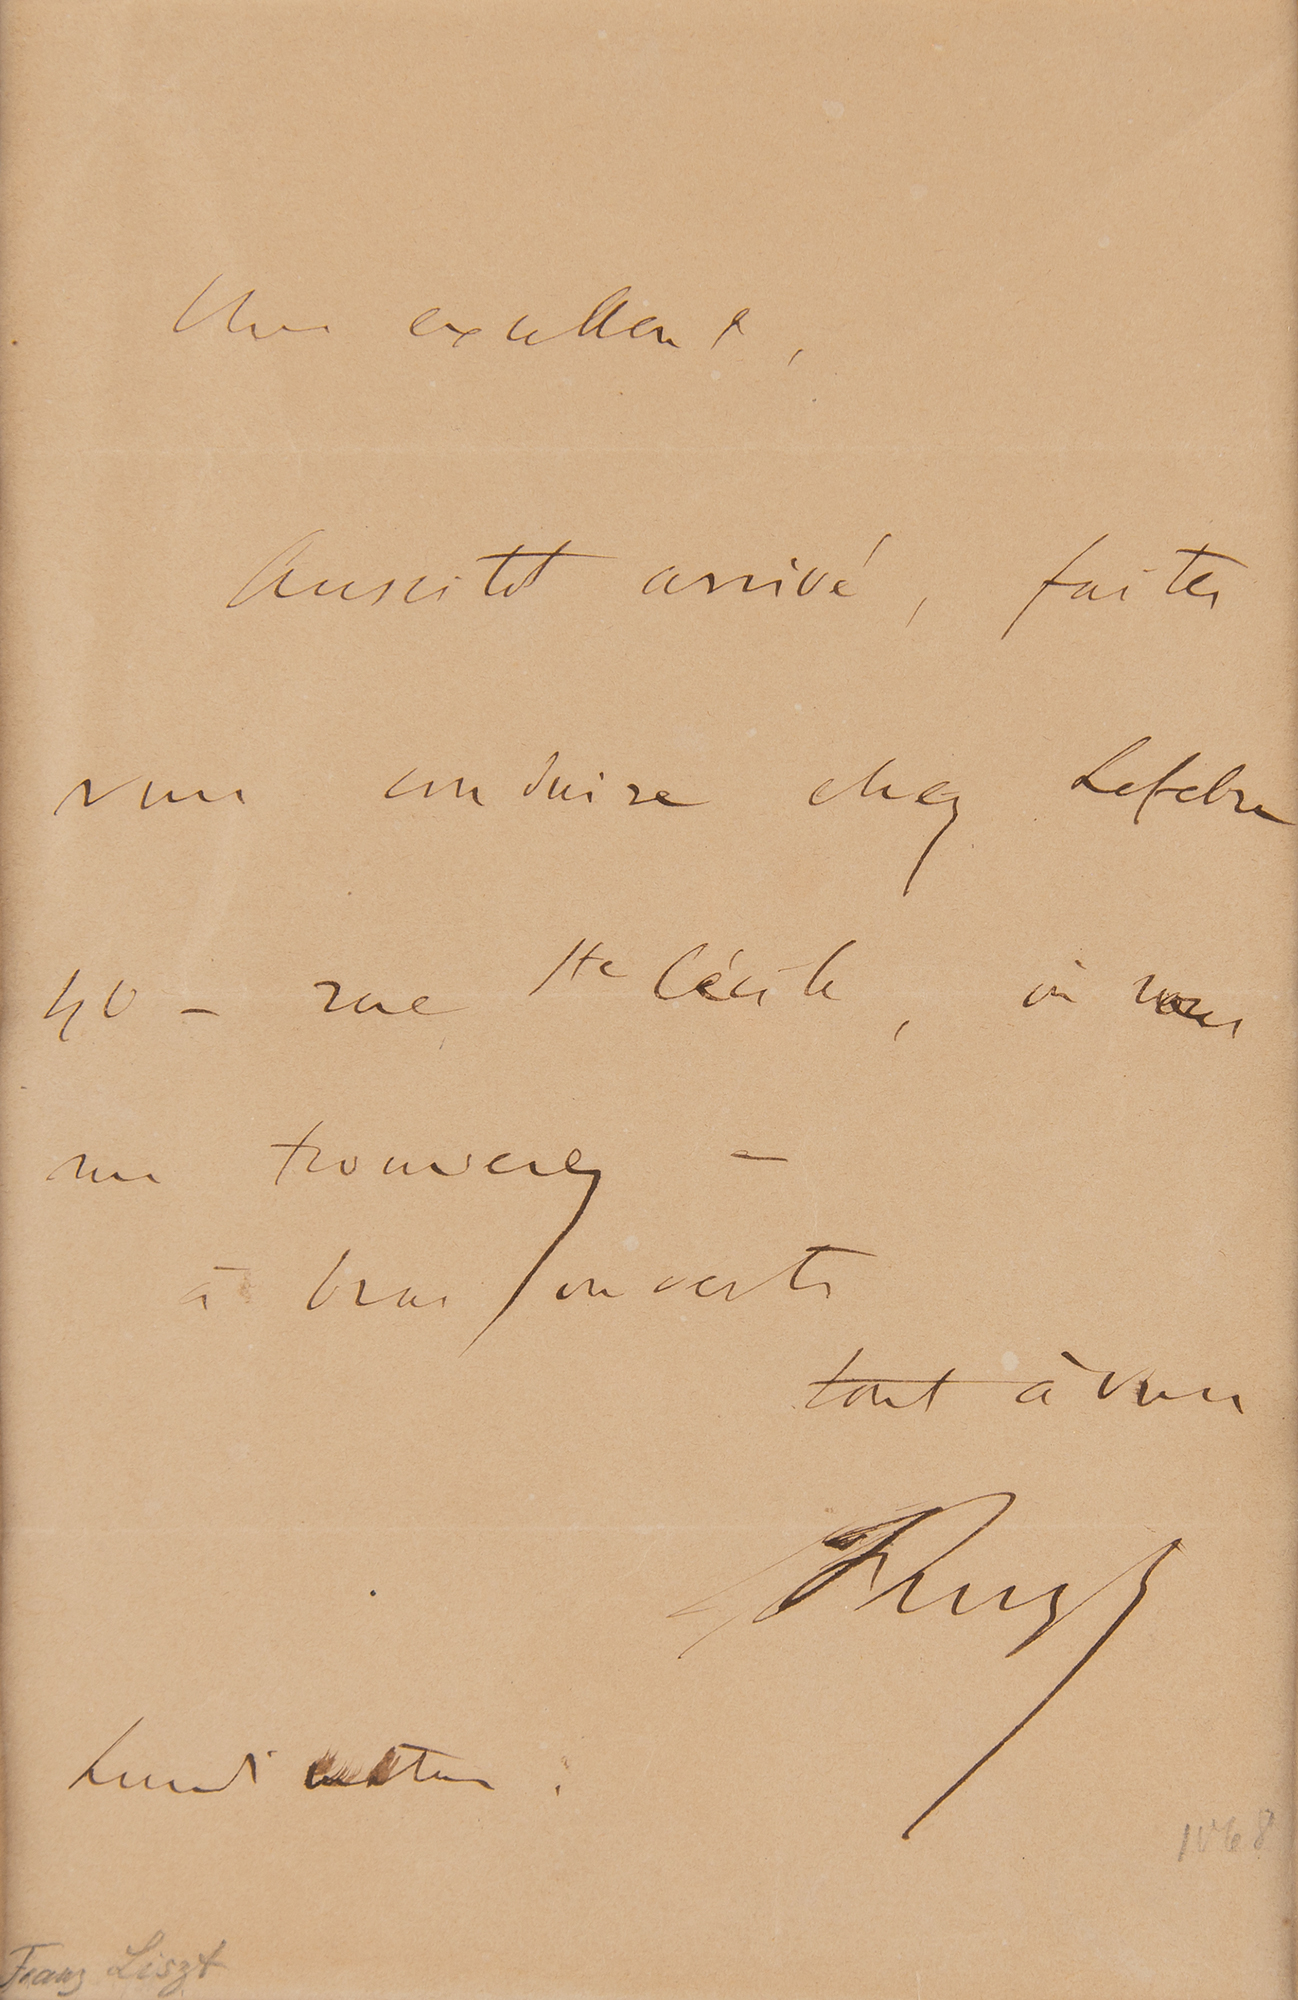 Cher excellent,
Aussitôt arrivé, faites
vous conduire chez Lefebvre
40 – rue Ste Cécile, où vous
me trouverez –
à bras ouverts
tout à vous
FLiszt
Lundi matin.
Franz Liszt